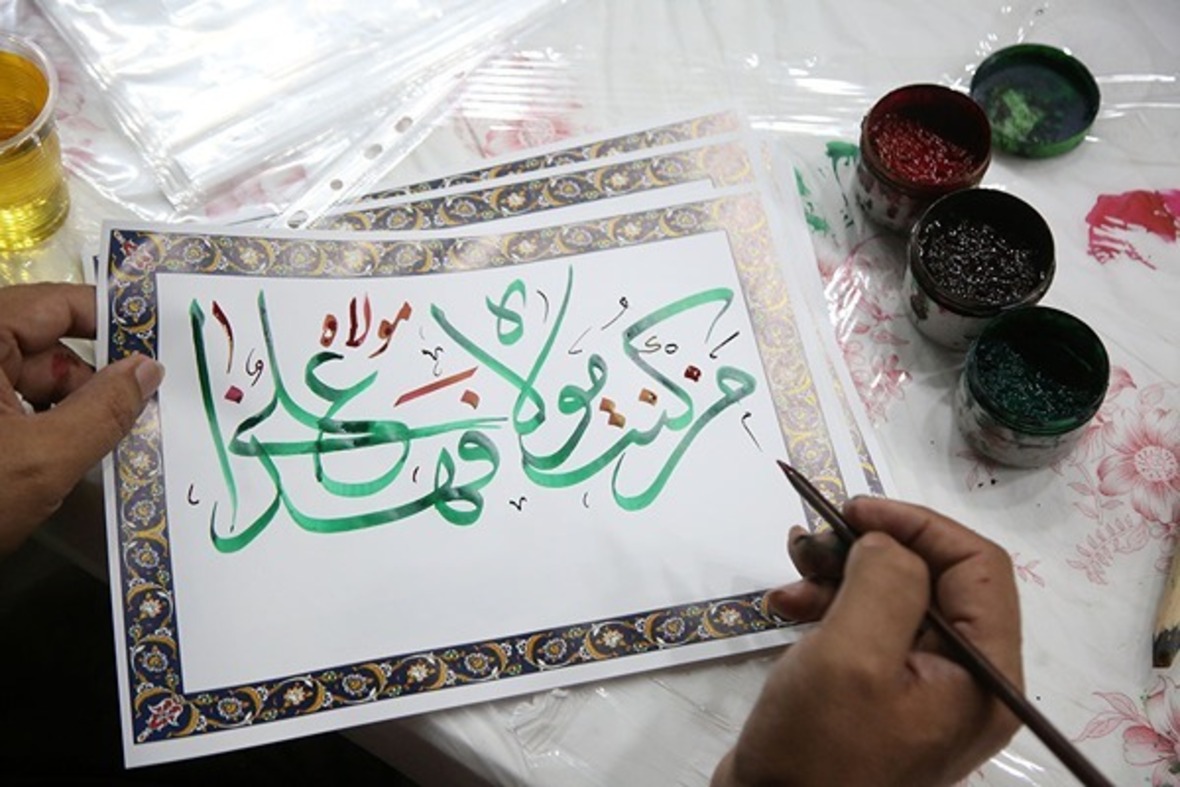 من کنت مولاه فهذا علی مولاه